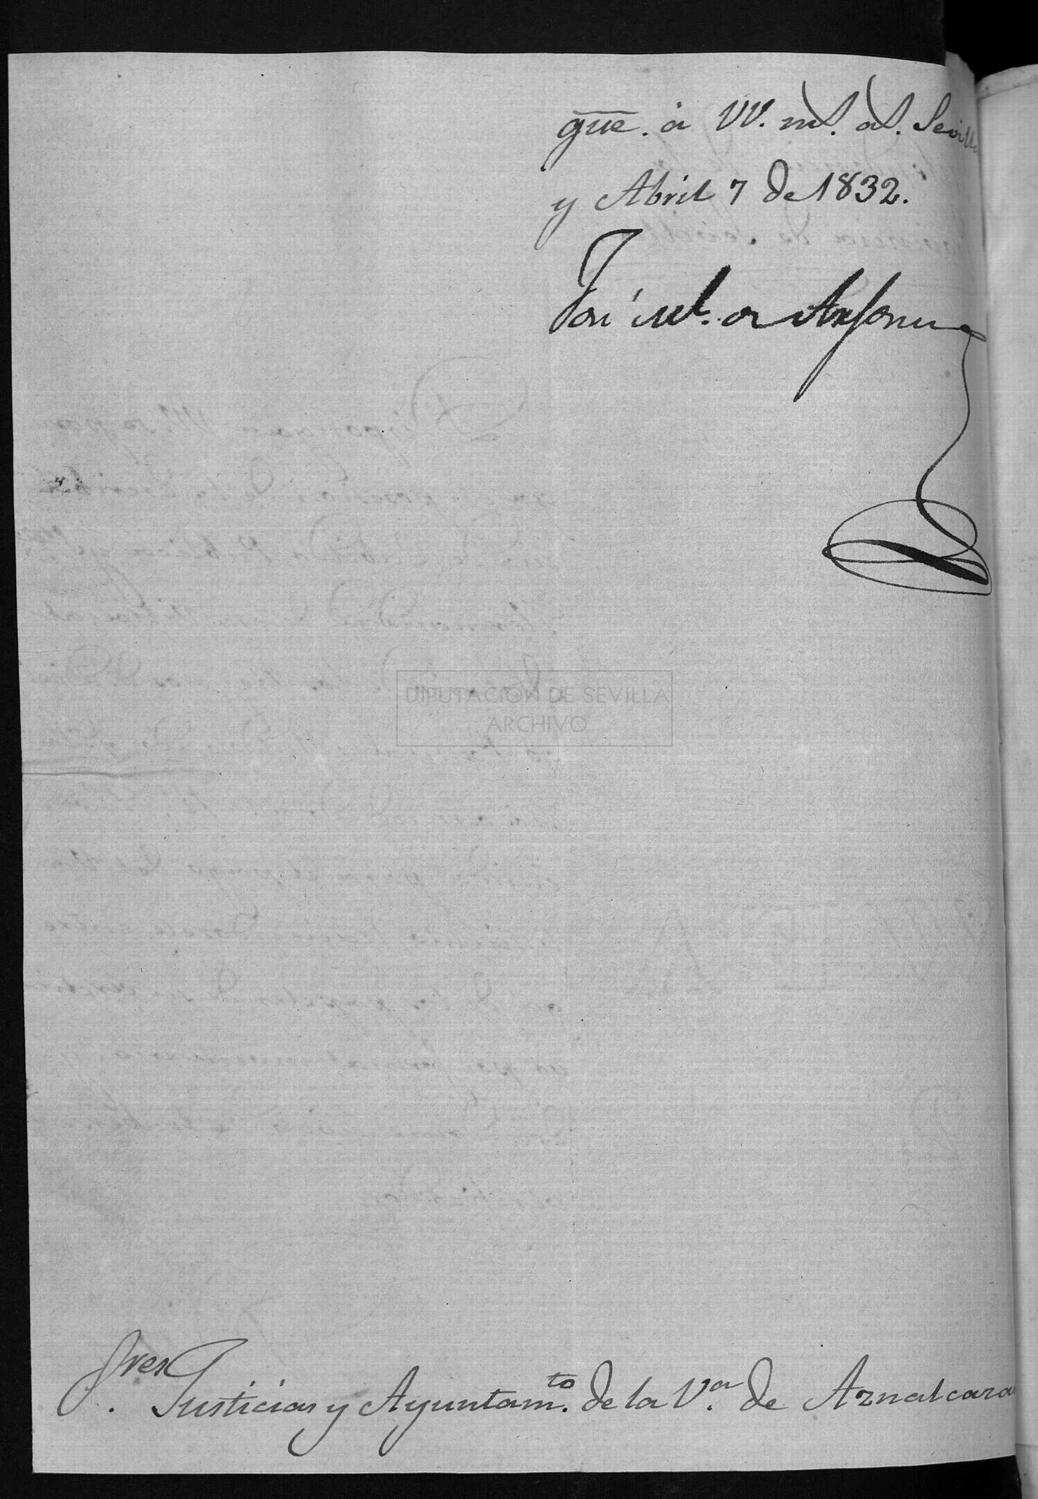 gūe. à VV. ms. as. Sevilla
y Abril 7 de 1832.
José Ml. de Arjona
DIPUTACIÓN DE SEVILLA
ARCHIVO
Sres.
Justicia y Ayuntam.to de la V.a de Aznalcazar